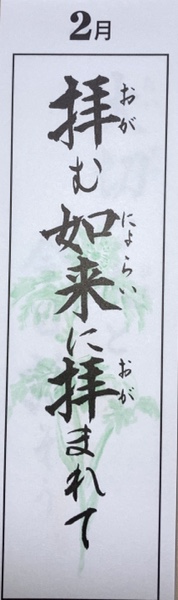 2月
拝む如来に拝まれて
おが
にょらい
おが